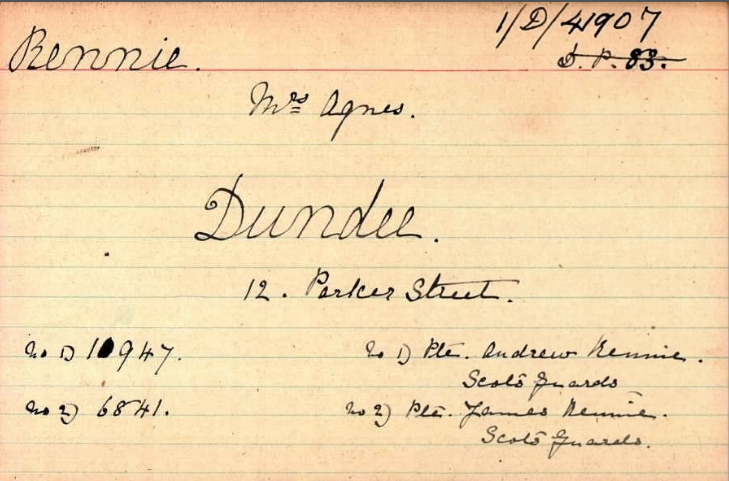 1/D/41907
D. P. 83.
Rennie.
Mrs Agnes.
Dundee.
12. Parker Street.
No 1) 10947. No 1) Pte. Andrew Rennie.
Scots Guards
No 2) 6841. No 2) Pte. James Rennie.
Scots Guards.